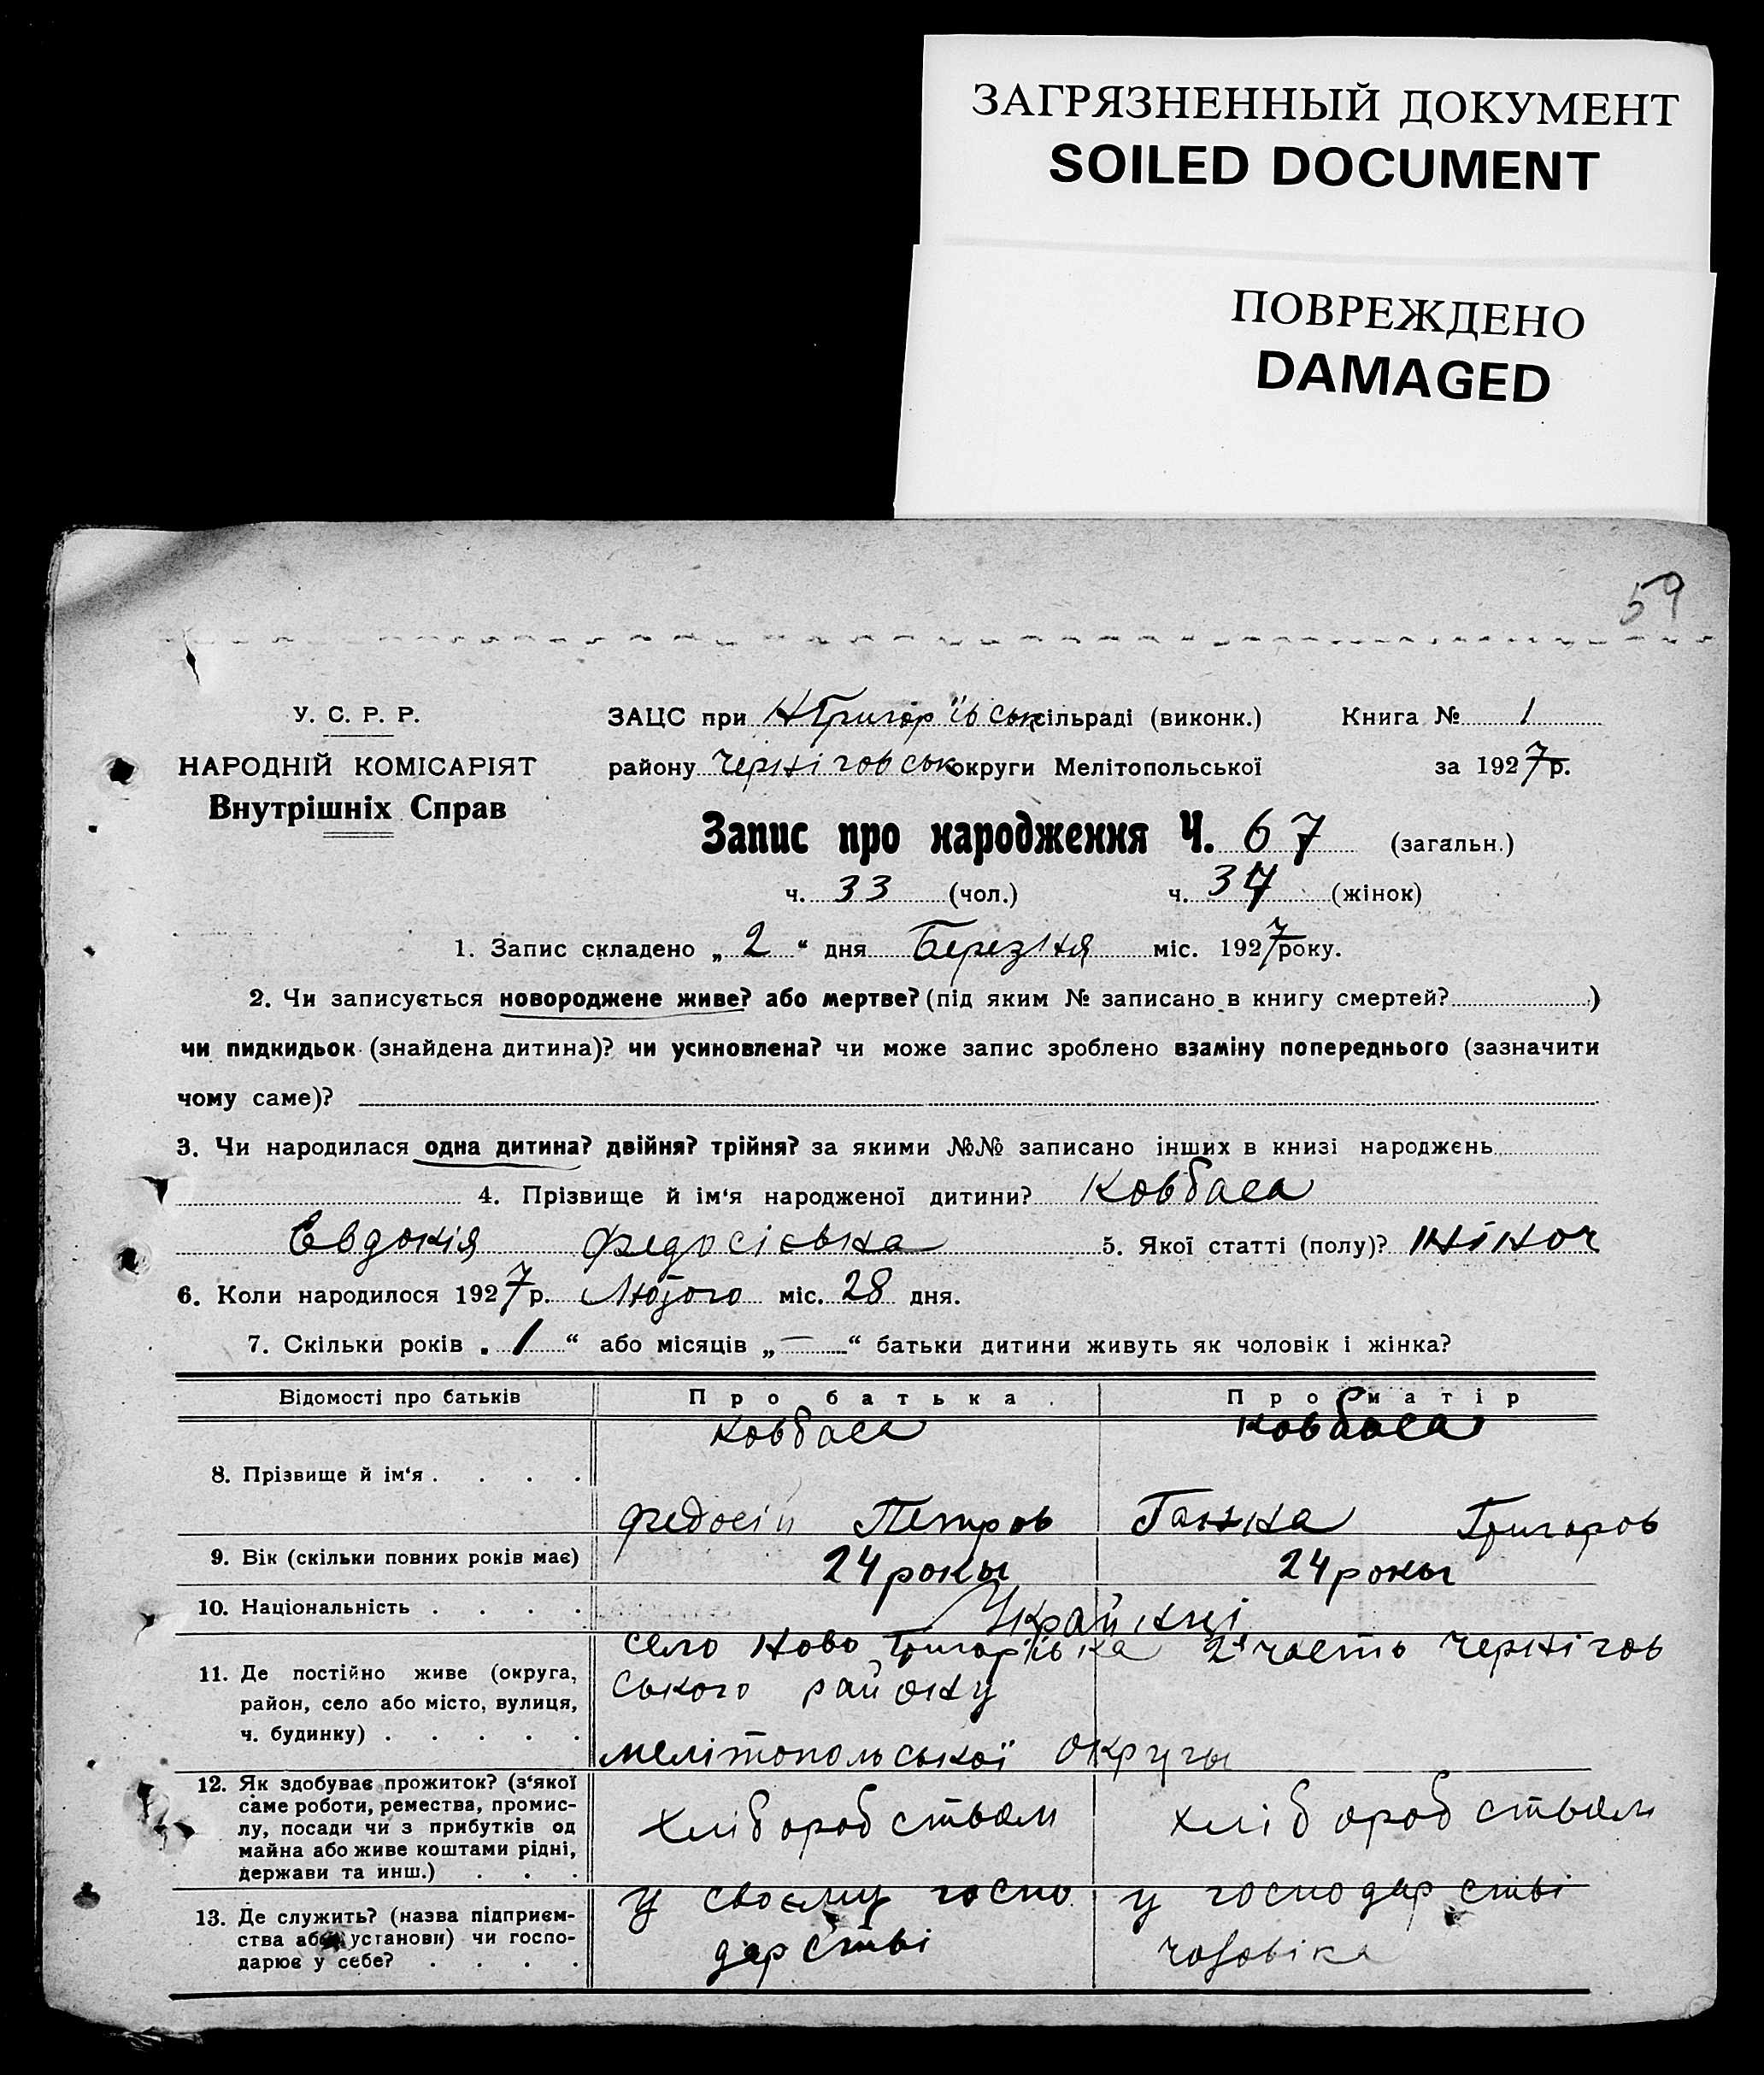 ЗАГРЯЗНЕННЫЙ ДОКУМЕНТ
SOILED DOCUMENT
ПОВРЕЖДЕНО
DAMAGED
59
У. С. Р. Р.
НАРОДНІЙ КОМІСАРІЯТ
Внутрішніх Справ
ЗАЦС при НГригор'ївськ сільраді (виконк.) Книга № 1
району Черніговськ округи Мелітопольської за 1927 р.
Запис про народження Ч. 67 (загальн.)
ч. 33 (чол.) ч. 34 (жінок)
1. Запис складено „ 2 “ дня Березня міс. 1927 року.
2. Чи записується новороджене живе? або мертве? (під яким № записано в книгу смертей? )
чи пидкидьок (знайдена дитина)? чи усиновлена? чи може запис зроблено взаміну попереднього (зазначити
чому саме)?
3. Чи народилася одна дитина? двійня? трійня? за якими №№ записано інших в книзі народжень
4. Прізвище й ім‘я народженої дитини? Ковбаса
Евдокія Федосієвна 5. Якої статті (полу)? жіноч
6. Коли народилося 1927 р. Лютого міс. 28 дня.
7. Скільки років „ 1 “ або місяців „ — “ батьки дитини живуть як чоловік і жінка?
Відомості про батьків Про батька Про матір
Ковбаса Ковбаса
8. Прізвище й ім‘я
Федосій Петров Ганна Григоров
9. Вік (скільки повних років має) 24 рокы 24 рокы
10. Національність Українці
село Ново Григор'ївка 2а часть Чернігов
11. Де постійно живе (округа,
район, село або місто, вулиця,
ч. будинку)
ського району
мелітопольської округы
12. Як здобуває прожиток? (з‘якої
саме роботи, ремества, промис-
лу, посади чи з прибутків од
майна або живе коштами рідні,
держави та инш.)
хліборобством хліборобством
13. Де служить? (назва підприєм-
ства або установи) чи госпо-
дарює у себе?
у своєму госпо у господарстві
дарстві чоловіка